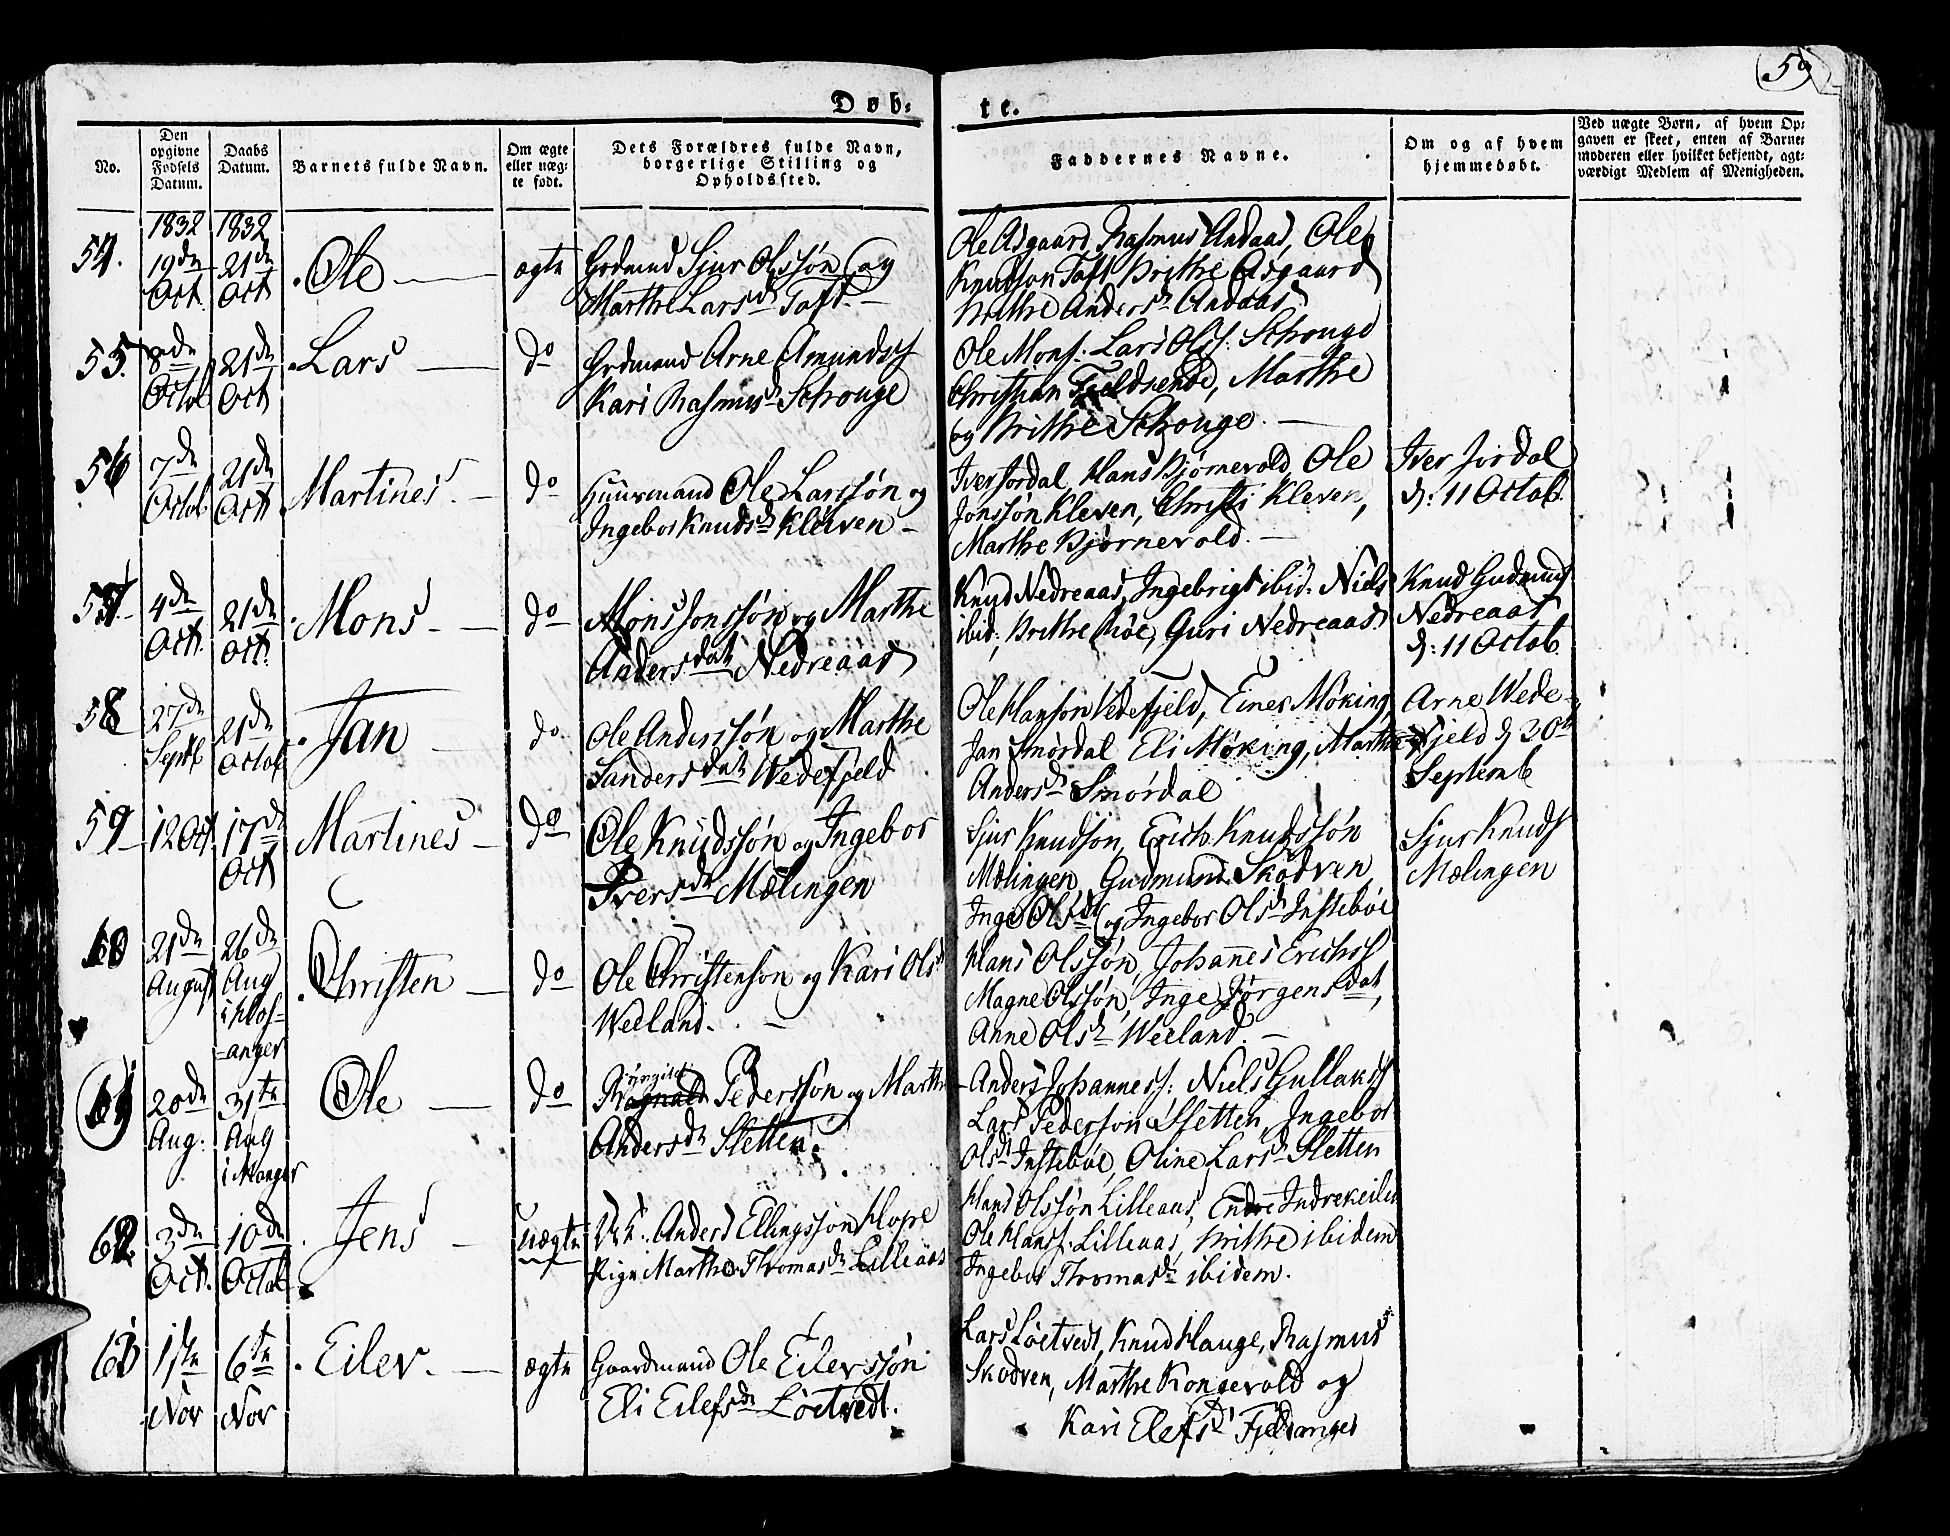 59
Døb-
te.
No.
Den opgivne Fødsels Datum.
Daabs Datum.
Barnets fulde Navn.
Om ægte eller uæg- te født.
Dets Forældres fulde Navn, borgerlige Stilling og Opholdssted.
Faddernes Navne.
Om og af hvem hjemmedøbt.
Ved uægte Børn, af hvem Op- gaven er skeet, enten af Barne- moderen eller hvilket bekjendt, agt- værdigt Medlem af Menigheden.
1832 1832
54. 19de Oct. 21de Oct Ole ægte
Grdmand Sjur Olssøn og
Marthe Larsd. Toft.
Ole Asgaard, Rasmus Andaas, Ole
Knudson Toft Brithe Asgaard
Brithe Andersd Andaas
55. 8de Octob 21de Oct Lars do
Grdmand Arne Amundss
Kari Rasmusd Schouge
Ole Mons. Lars Olss. Schouge
Christian Fjeldsende, Marthe
og Brithe Schouge.
56 7de Octob 21de Oct Martines. do
Huusmand Ole Larssøn og
Ingebor Knudsd Kleiven
Iver Jordal, Hans Bjørnevold, Ole
Jonssøn Kleven, Christi Kleven,
Marthe Bjørnevold.
Iver Jordal
d: 11 Octob.
57 4de Oct. 21de Oct. Mons do
Mons Jonssøn og Marthe
Andersdat Nedreaas
Knud Nedreaas, Ingebrigt ibid. Niels
ibid, Brithe Møe, Guri Nedreaas
Knud Gudmunds
Nedreaas
d: 11 Octob.
58 27de Septb 21de Octob. Jan do.
Ole Anderssøn og Marthe
Sandersdat Wedefjeld
Ole Hanson Vedefjeld, Einer Møking,
Jan Smørdal Eli Møking, Marthe
Andersd Smørdal
Arne Wede-
fjeld d 30te
Septemb
59 12 Oct. 17de Oct Martines do
Ole Knudssøn og Ingebor
Iversd Mælingen
Sjur Knudson, Erich Knudssøn
Mælingen, Gudmund Skodven
Inge Olsd og Ingebor Olsd Instebøe
Sjur Knuds
Mælingen
60 21de August 26de Aug i Hos-
-anger Christen do
Ole Christenson og Kari Olsd
Weeland.
Hans Olssøn, Johannes Erichss
Magne Olssøn, Inge Jørgensdat,
Anne Olsd Weeland.
61 20de Aug. 31te Aug i Manger Ole do
Pedersson og Marthe
Andersd Sletten.
Anders Johanness: Niels Gullakss
Lars Pederson Sletten, Ingebor
Olsd Instebøe, Oline Larsd Sletten
62 3de Oct. 10de Octob Jens uægte
Anders Ellingsson Hope
Pige Marthe Thomasd Lilleaas
Hans Olssøn Lilleaas, Endre
Ole Hanss. Lilleaas, Brithe ibidem
Ingebor Thomasd ibidem.
63 1ste Nov 6te Nov Eiler. ægte
Gaardmand Ole Eilerssøn
Eli Eilefsd Løetvedt.
Lars Løetvedt, Knud Hauge, Rasmus
Skodven, Marthe Kongevold og
Kari Elefsd Fjeldanger